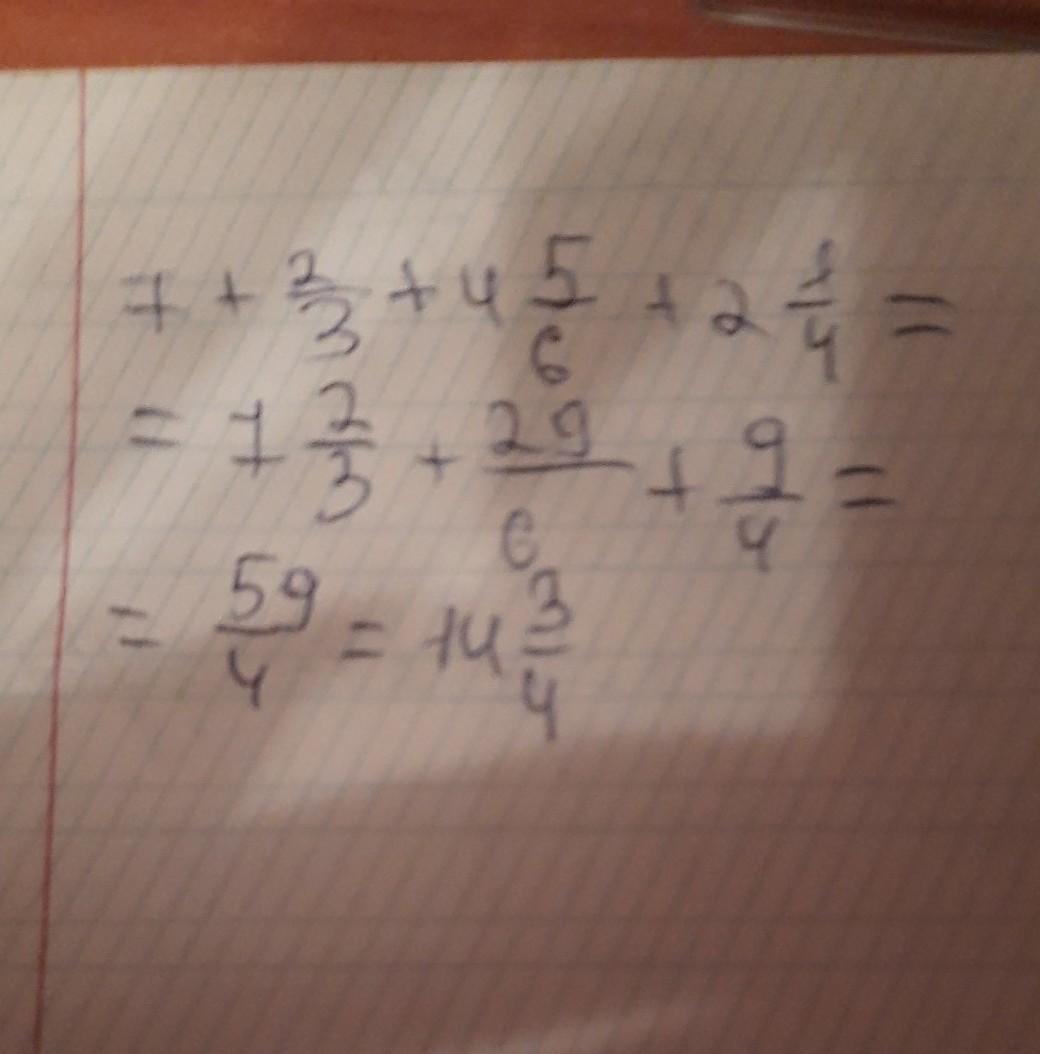 7 + 2/3 + 4 5/6 + 2 1/4 =
= 7 2/3 + 29/6 + 9/4 =
= 59/4 = 14 3/4